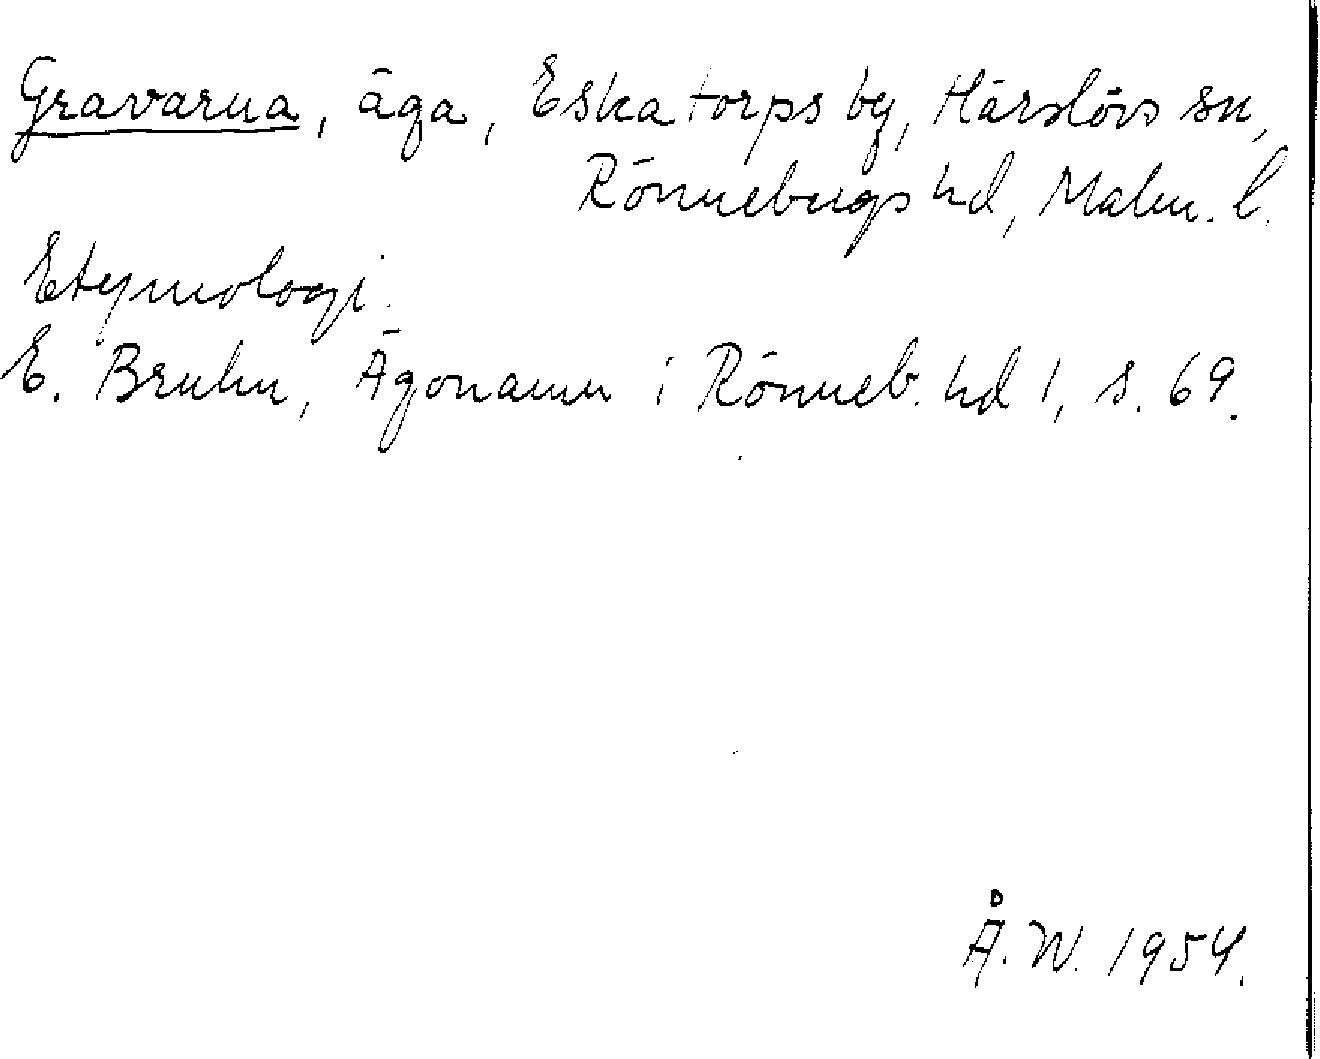 Gravarna, äga, Eskatorps by, Härslövs sn,
Rönnebergs hd, Malm. l.
Etymologi.
E. Bruhn, Ägonamn i Rönneb. hd 1, s. 69.
Å. W. 1954.